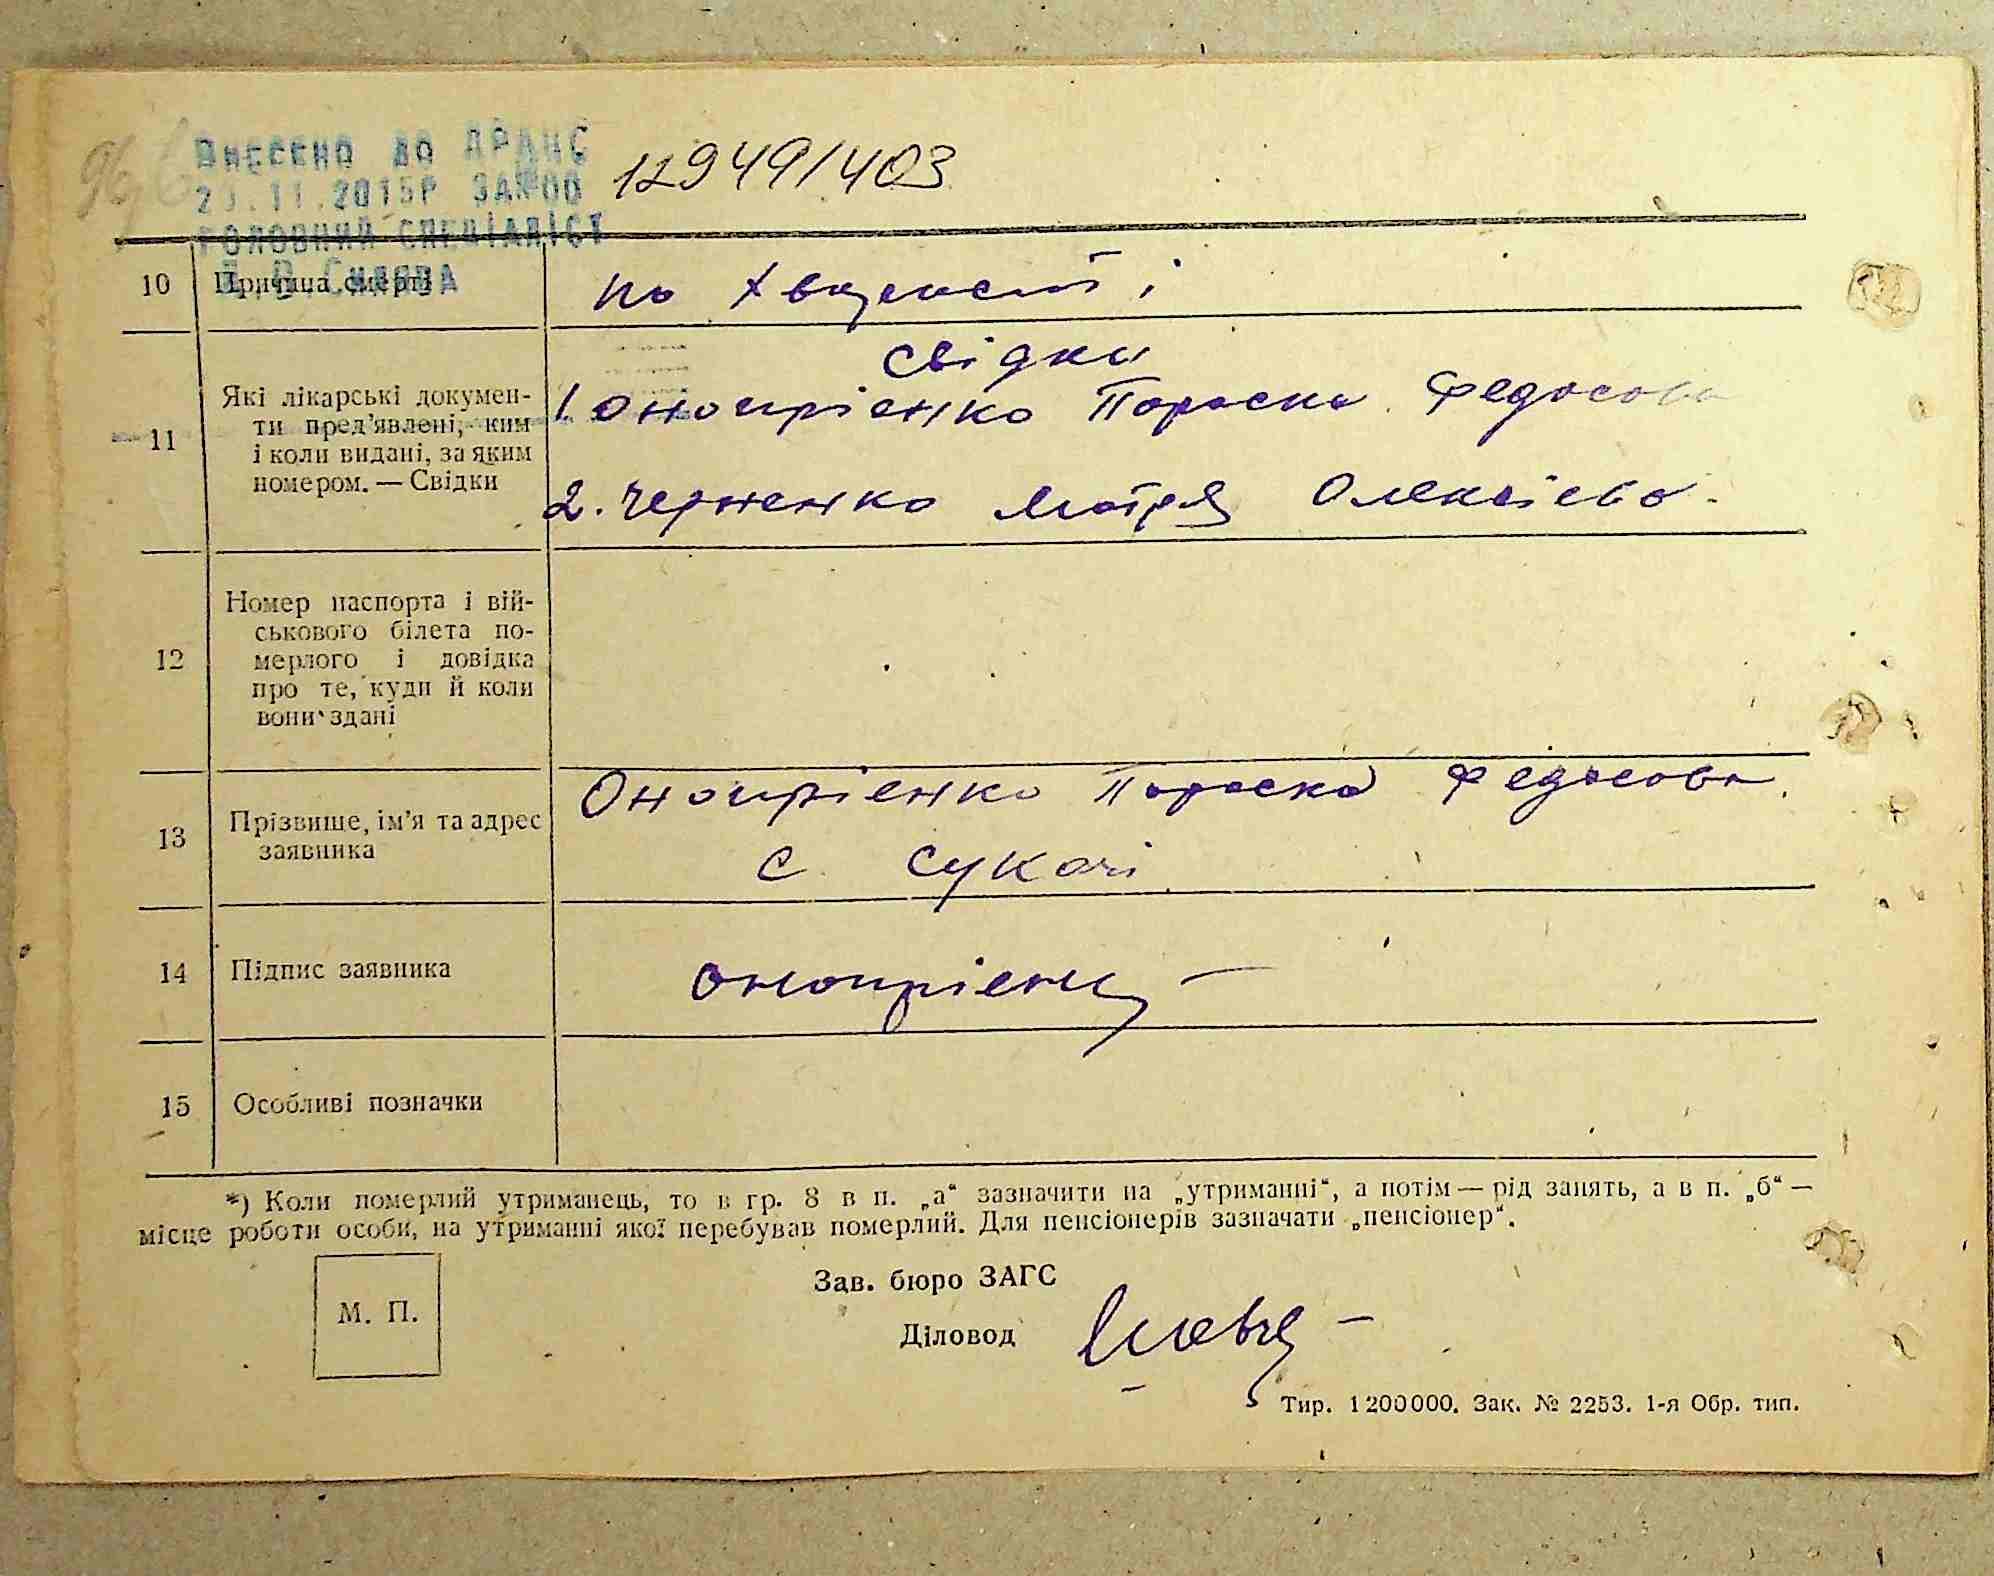 Внесено до ДРАЦС
12949/403
2 .11.2015р
Головний спеціаліст
10 Причина смерті
по
Свідки
11 Які лікарські докумен-
ти пред'явлені, ким
і коли видані, за яким
номером. — Свідки
1. Онопрієнко Параска Федосова
2. Черненко Мотря Олексієва
12 Номер паспорта і вій-
ськового білета по-
мерлого і довідка
про те, куди й коли
вони здані
13 Прізвище, ім'я та адрес
заявника
Онопрієнко Параска Федосова.
с. Сукачі
14 Підпис заявника
15 Особливі позначки
*) Коли померлий утриманець, то в гр. 8 в п. „а“ зазначити на „утриманні“, а потім — рід занять, а в п. „б“ —
місце роботи особи, на утриманні якої перебував померлий. Для пенсіонерів зазначати „пенсіонер“.
М. П.
Зав. бюро ЗАГС
Діловод
Тир. 1200000. Зак. № 2253. 1-я Обр. тип.